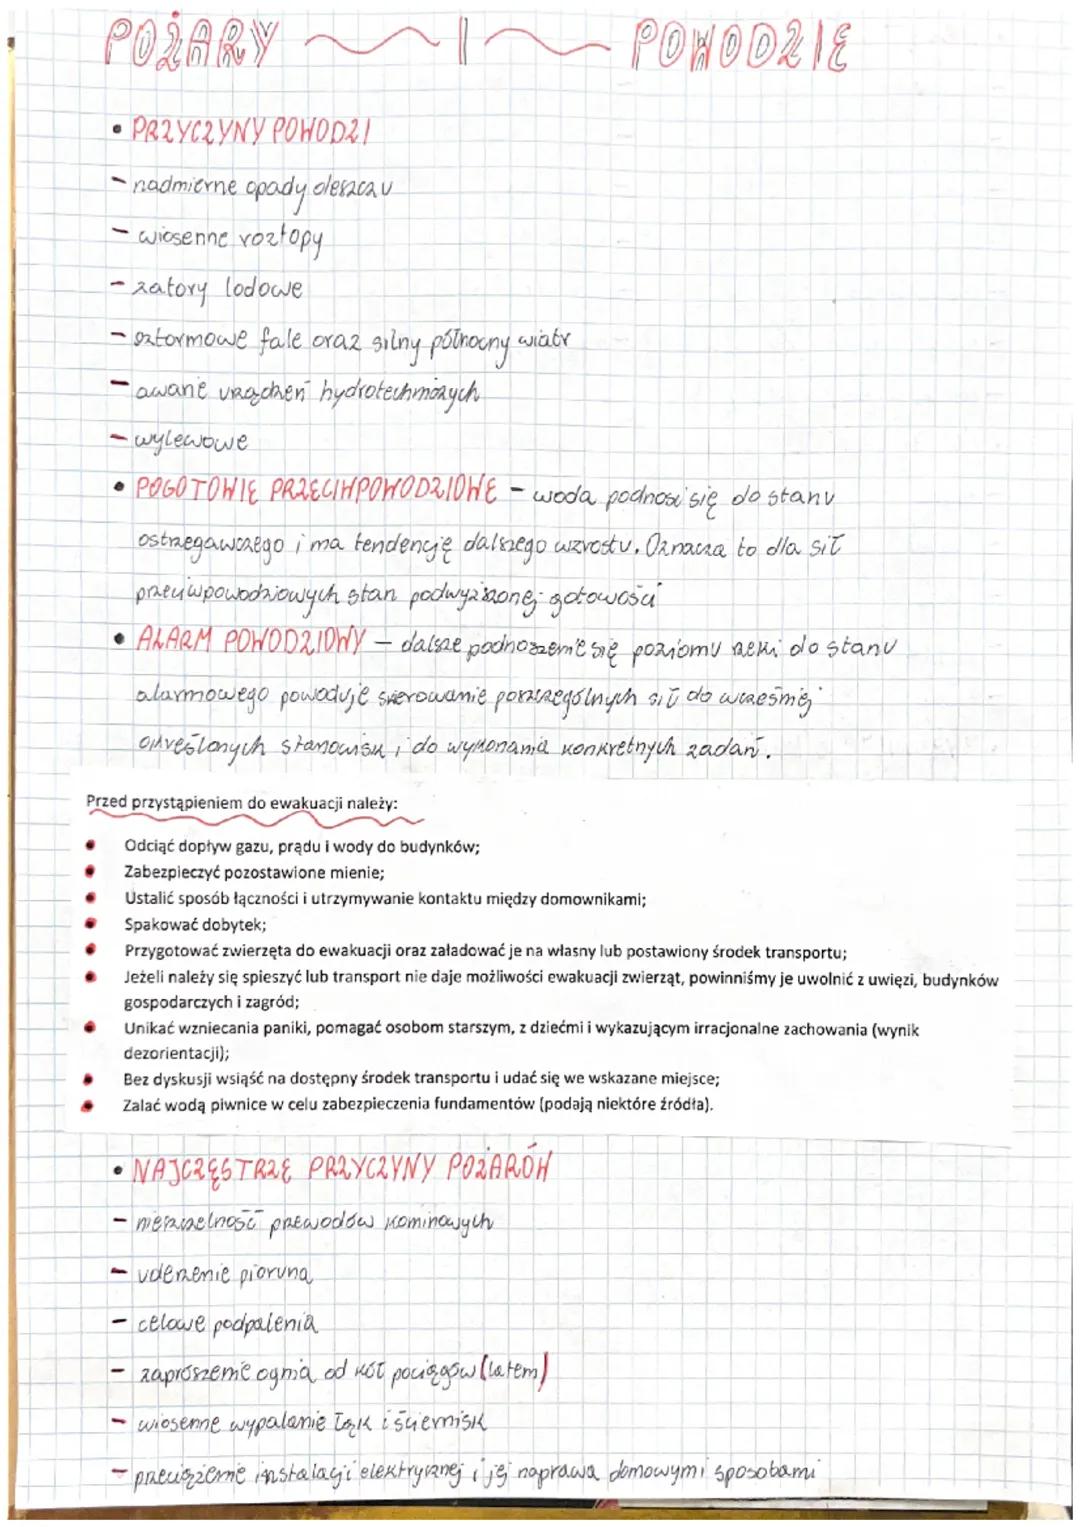 POŻARY I POWODZIE
• PRZYCZYNY POWODZI
- nadmierne opady deszczu
- wiosenne roztopy
- zatory lodowe
- sztormowe fale oraz silny północny wiatr
- awarie urządzeń hydrotechnicznych
- wylewowe
• POGOTOWIE PRZECIWPOWODZIOWE - woda podnosi się do stanu
ostrzegawczego i ma tendencję dalszego wzrostu. Oznacza to dla sił
przeciwpowodziowych stan podwyższonej gotowości
• ALARM POWODZIOWY - dalsze podnoszenie się poziomu rzeki do stanu
alarmowego powoduje skierowanie poszczególnych sił do wcześniej
określonych stanowisk i do wykonania konkretnych zadań.
Przed przystąpieniem do ewakuacji należy:
• Odciąć dopływ gazu, prądu i wody do budynków;
• Zabezpieczyć pozostawione mienie;
• Ustalić sposób łączności i utrzymywanie kontaktu między domownikami;
• Spakować dobytek;
• Przygotować zwierzęta do ewakuacji oraz załadować je na własny lub postawiony środek transportu;
• Jeżeli należy się spieszyć lub transport nie daje możliwości ewakuacji zwierząt, powinniśmy je uwolnić z uwięzi, budynków
gospodarczych i zagród;
• Unikać wzniecania paniki, pomagać osobom starszym, z dziećmi i wykazującym irracjonalne zachowania (wynik
dezorientacji);
• Bez dyskusji wsiąść na dostępny środek transportu i udać się we wskazane miejsce;
• Zalać wodą piwnice w celu zabezpieczenia fundamentów (podają niektóre źródła).
• NAJCZĘSTRZE PRZYCZYNY POŻARÓW
- nieszczelność przewodów kominowych
- uderzenie pioruna
- celowe podpalenia
- zaprószenie ognia od kół pociągów (latem)
- wiosenne wypalanie łąk i ściernisk
- przeciążenie instalacji elektrycznej i jej naprawa domowymi sposobami